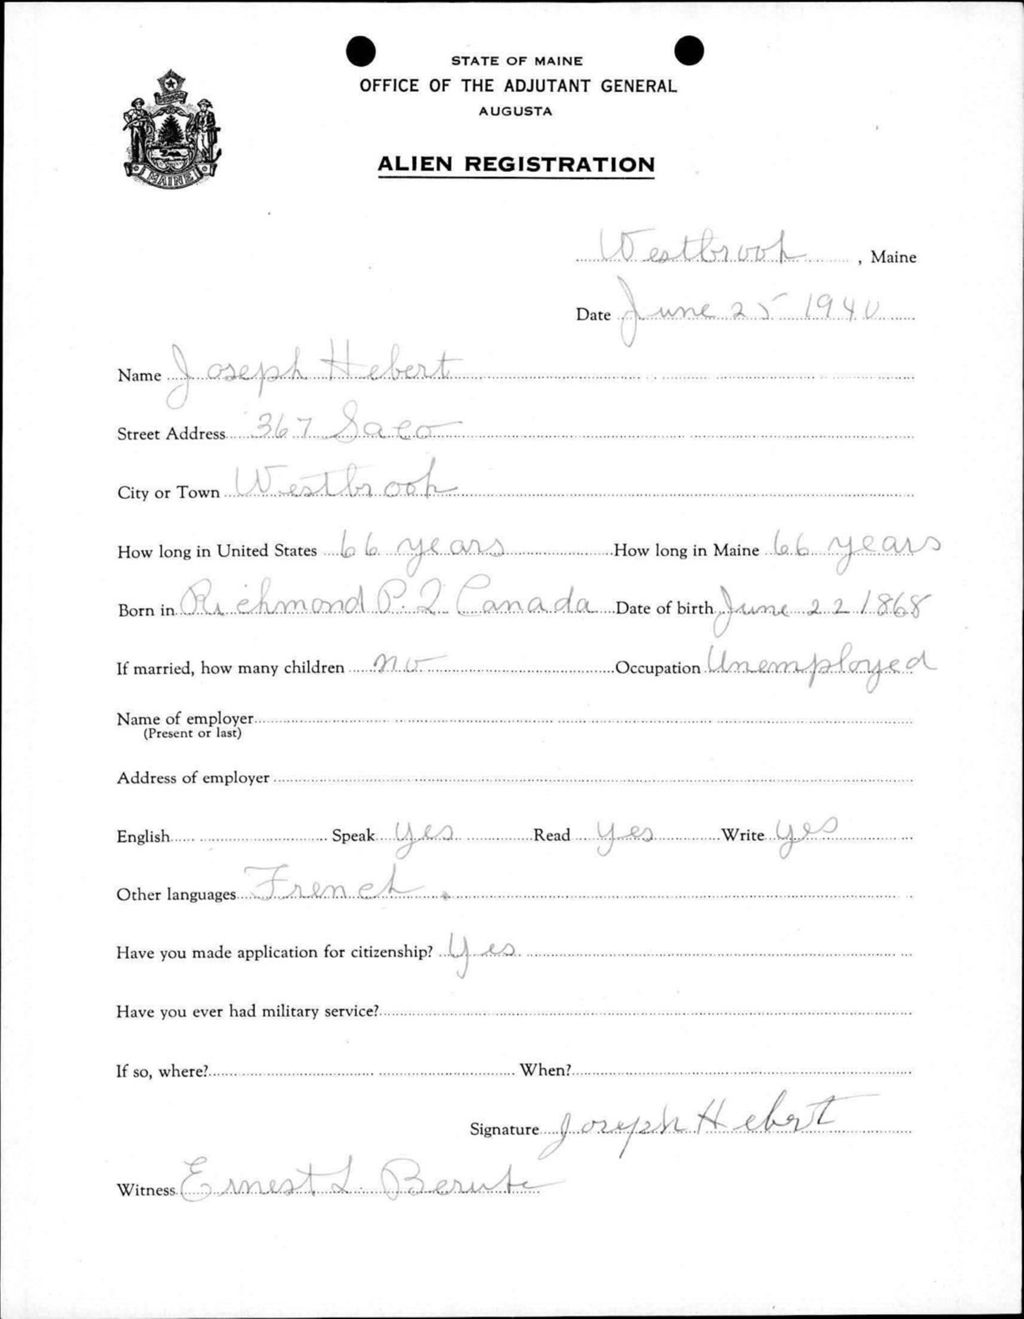 STATE OF MAINE
OFFICE OF THE ADJUTANT GENERAL
AUGUSTA
ALIEN REGISTRATION
MAINE
Westbrook, Maine
Date June 25 1940
Name Joseph Hebert
Street Address 367 Saco
City or Town Westbrook
How long in United States 66 years How long in Maine 66 years
Born in Richmond P.Q Canada Date of birth June 22 1868
If married, how many children no Occupation Unemployed
Name of employer
(Present or last)
Address of employer
English Speak yes Read yes Write yes
Other languages French
Have you made application for citizenship? Yes
Have you ever had military service?
If so, where? When?
Signature Joseph Hebert
Witness Ernest L.